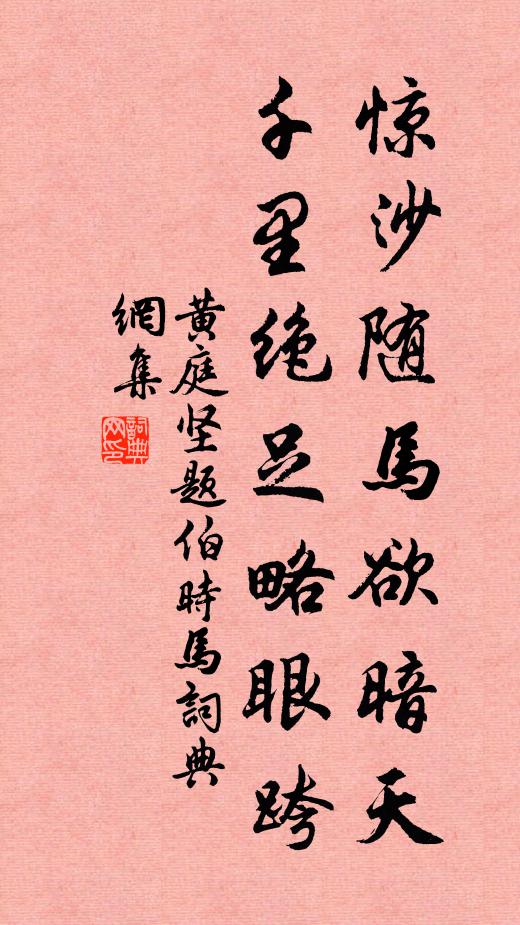 惊沙随馬欲暗天
千里绝足略眼跨
黄庭坚题伯時馬詞典
網集
詞典网印